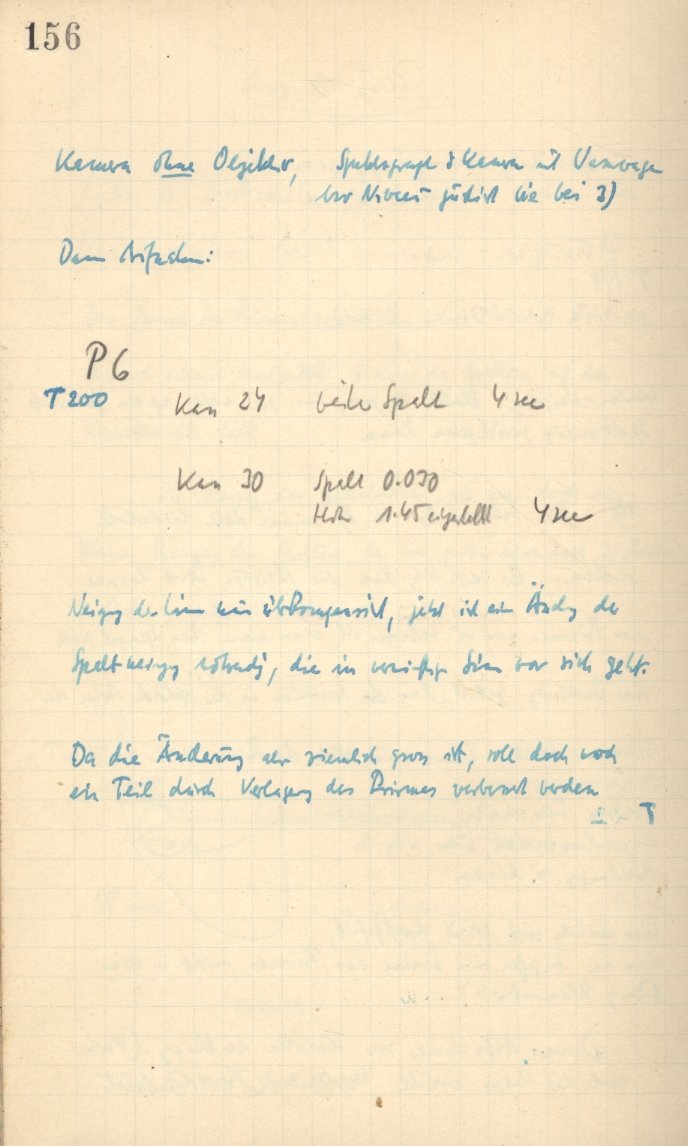 156
Kamera ohne Objektiv, Spektrograph & Kamera mit
bei 3)
Dann Aufnahmen:
P6
T200 Kam 24 breiter Spalt 4 sec
Kam 30 Spalt 0.030
Höhe 1.45 eingestellt 4 sec
Neigung der Linien nun überkompensiert, jetzt ist eine Ändg der
Spaltneigung notwendig, die in Sinn vor sich geht.
Da die Änderung aber ziemlich gross ist, soll doch noch
ein Teil durch Verlagerung des Prismas verbessert werden
T